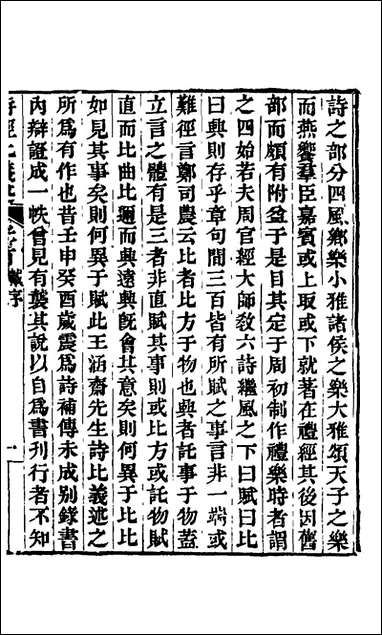 詩之部分四風鄉樂小雅諸侯之樂大雅頌天子之樂
而燕饗羣臣嘉賓或上取或下就著在禮經其後因舊
部而頗有附益于是目其定于周初制作禮樂時者謂
之四始若夫周官經大師敎六詩繼風之下曰賦曰比
曰興則存乎章句間三百皆有所賦之事言非一端或
難徑言鄭司農云比者比方于物也興者託事于物蓋
立言之體有是三者非直賦其事則或比方或託物賦
直而比曲比邇而興遠興旣會其意矣則何異于比比
如見其事矣則何異于賦此王涵齋先生詩比義述之
所爲有作也昔壬申癸酉歲震爲詩補傳未成別錄書
內辯證成一帙曾見有襲其說以自爲書刊行者不知
詩經比義述